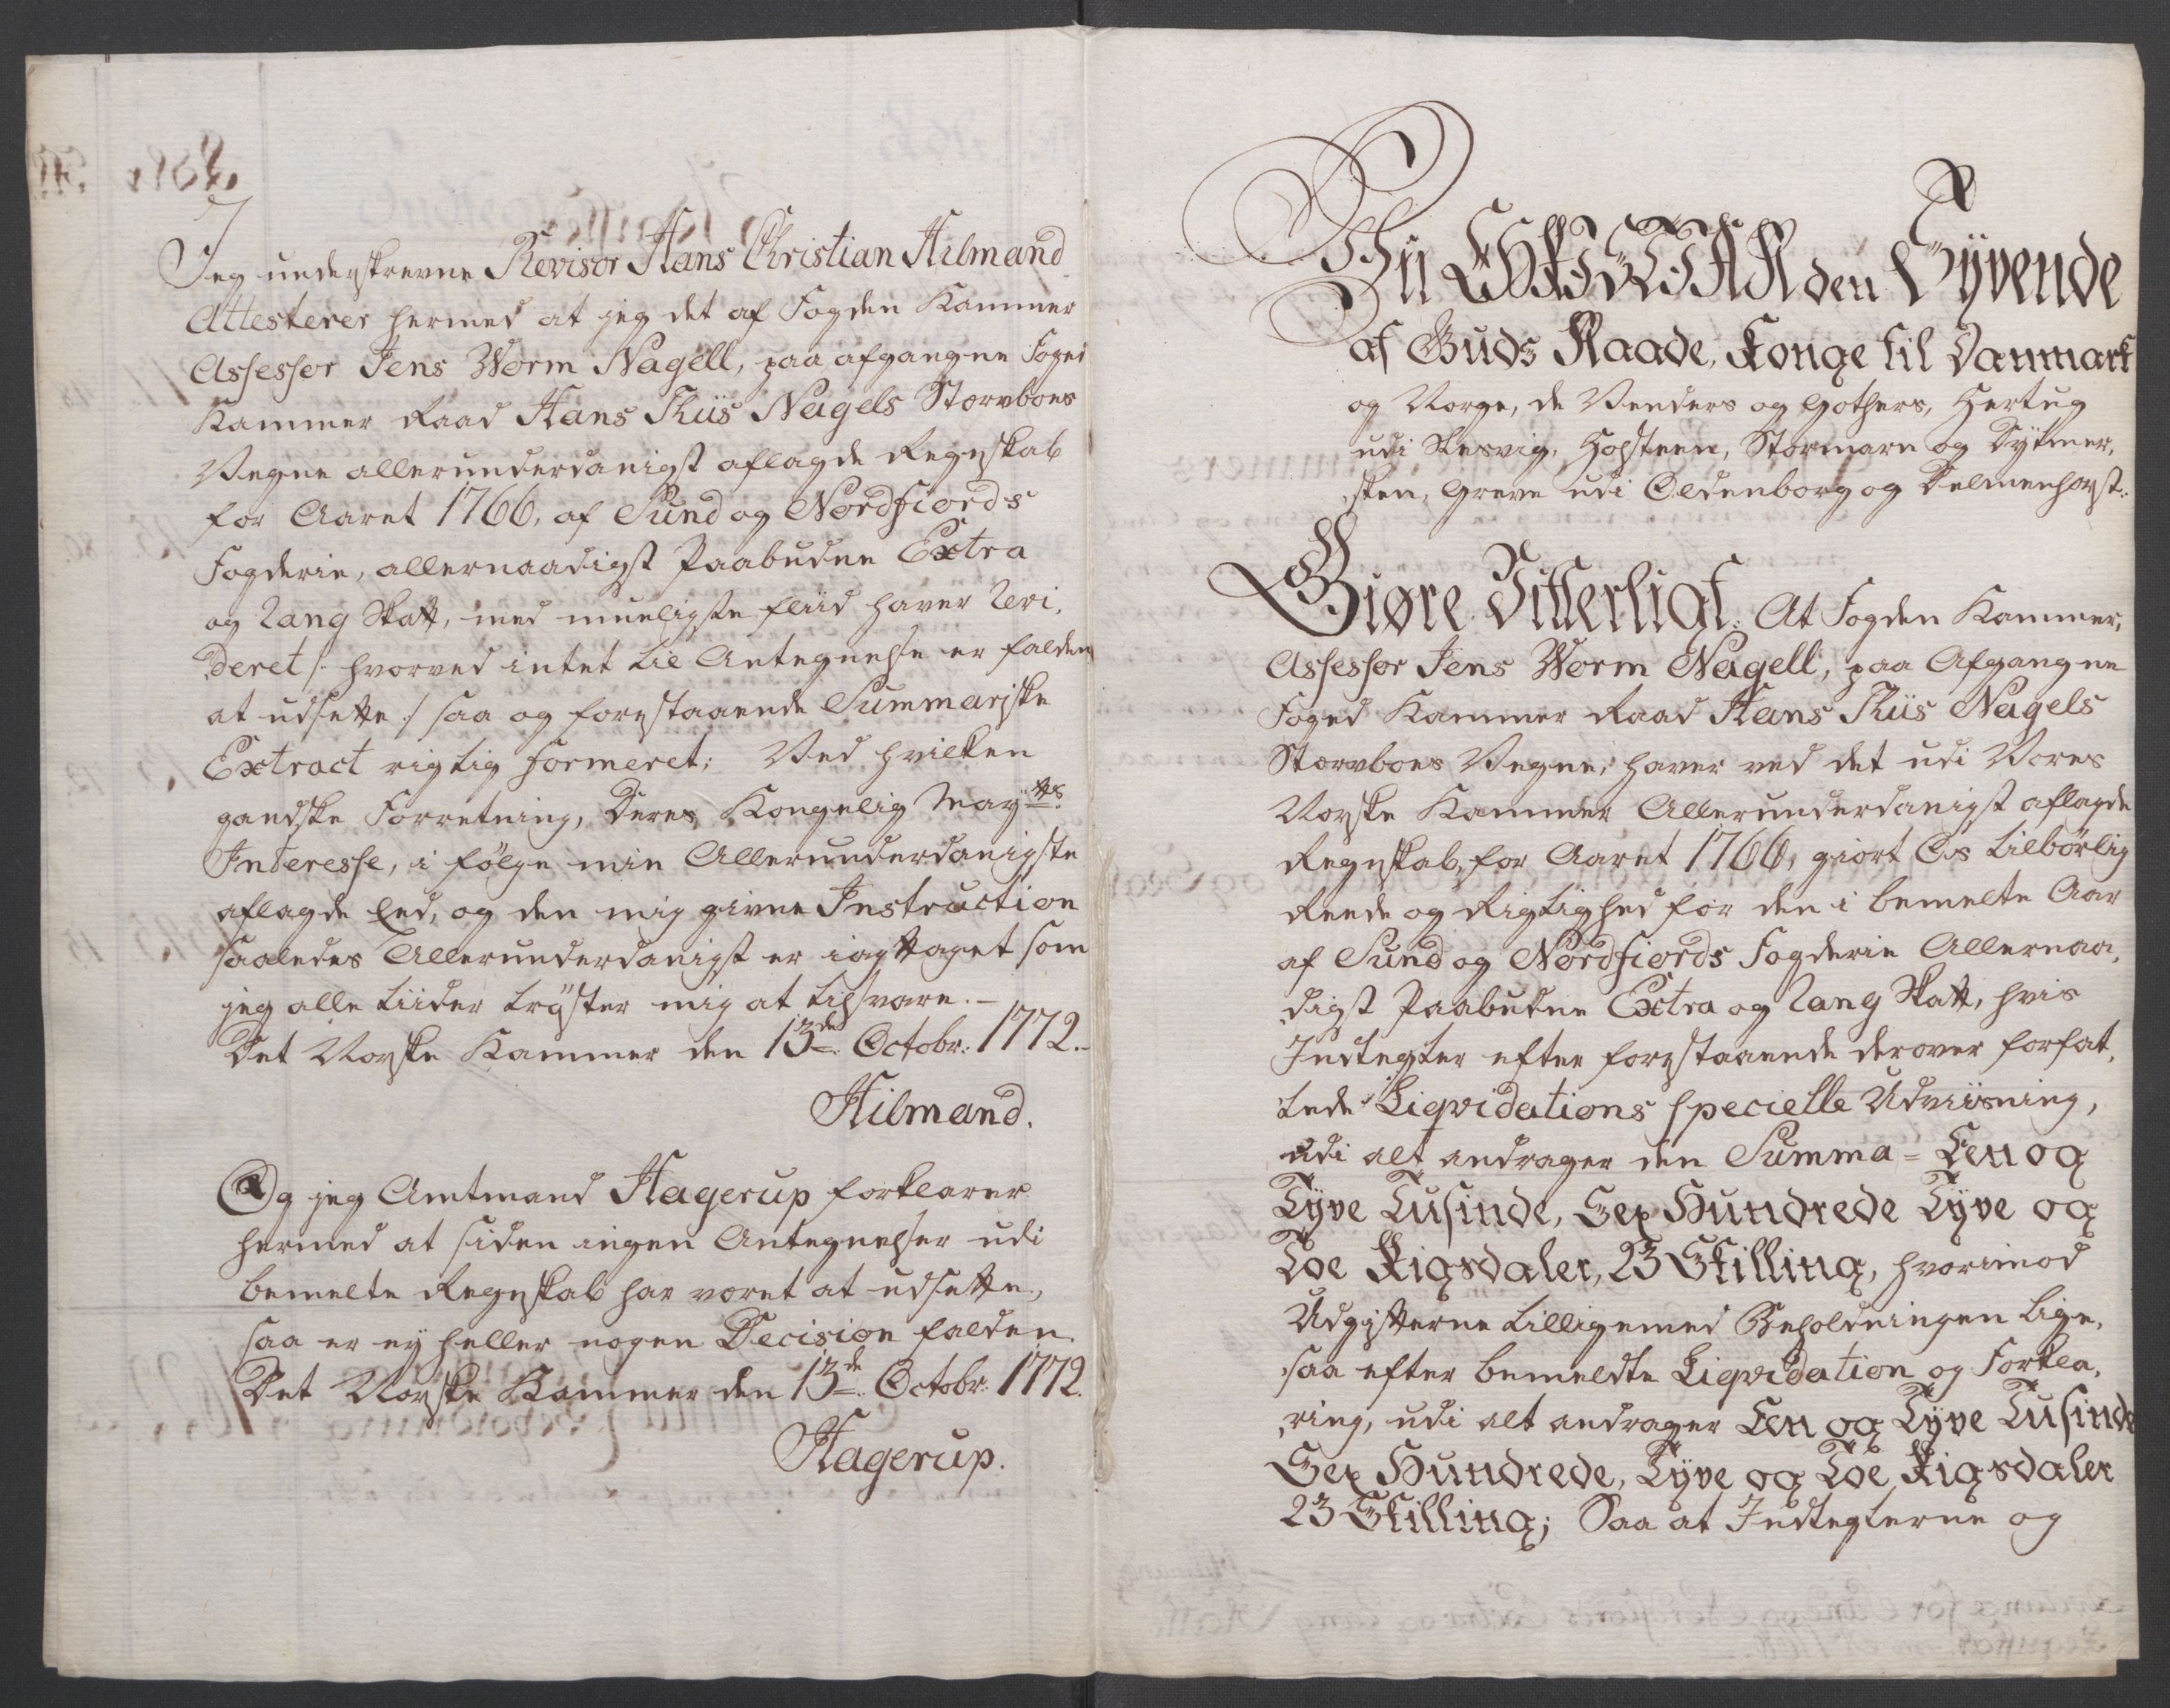 Jeg underskrevne Revisor Hans Christian Hilmand
Attesterer hermed at jeg det af Fogden Kammer
Assessor Jens Worm Nagell, paa afgangne Foged
Kammer Raad Hans Thiis Nagels Stervboes
Vegne allerunderdanigst aflagde Regnskab
for Aaret 1766, af Sund og Nordfiords
Fogderie, allernaadigst Paabudne Extra
og Rang Skatt, med mueligste fliid haver Revi,
deret /: hvorved intet til Antegnelse er falden
at udsette :/ saa og forestaaende Summariske
Extract rigtig formeret; Ved hvilken
gandske Forretning, Deres Kongelig Mayts
Interesse, i følge min Allerunderdanigste
aflagde Eed, og den mig givne Instruction
saaledes Allerunderdanigst er iagttaget som
jeg alle tiider trøster mig at tilsvare.-
Det Norske Kammer den 13de Octobr: 1772.-
Hilmand.
Og jeg Amtmand Hagerup forklarer
hermed at siden ingen Antegnelser udi
bemelte Regnskab har været at udsette,
saa er ey heller nogen Decision falden.
Det Norske Kammer den 13de Octobr: 1772.
Hagerup.
Vii CHRISTIAN den Syvende
af Guds Naade, Konge til Danmark
og Norge, de Venders og Gothers, Hertug
udi Slesvig, Holsteen, Stormarn og Dytmer,
sken, Greve udi Oldenborg og Delmenhorst:
Giøre Vitterligt: At Fogden Kammer,
Assessor Jens Worm Nagell, paa Afgangne
Foged Kammer Raad Hans Thiis Nagels
Stervboes Vegne, haver ved det udi Vores
Norske Kammer Allerunderdanigst aflagde
Regnskab, for Aaret 1766, giort Os tilbørlig
Reede og Rigtighed for den i bemelte Aar
af Sund og Nordfiords Fogderie Allernaa,
digst Paabudne Extra og Rang Skatt, hvis
Indtegter efter forestaaende derover forfat,
tede Liqvidations specielle Udviisning,
udi alt andrager den Summa = Een og
Tyve Tusinde, Sex Hundrede Tyve og
Toe Rigsdaler, 23 Skilling, hvorimod
Udgifterne tilligemed Beholdningen lige,
saa efter bemeldte Liqvidation og Forkla,
ring, udi alt andrager Een og Tyve Tusinde
Sex Hundrede, Tyve og Toe Rigsdaler
23 Skilling; Saa at Indtegterne og